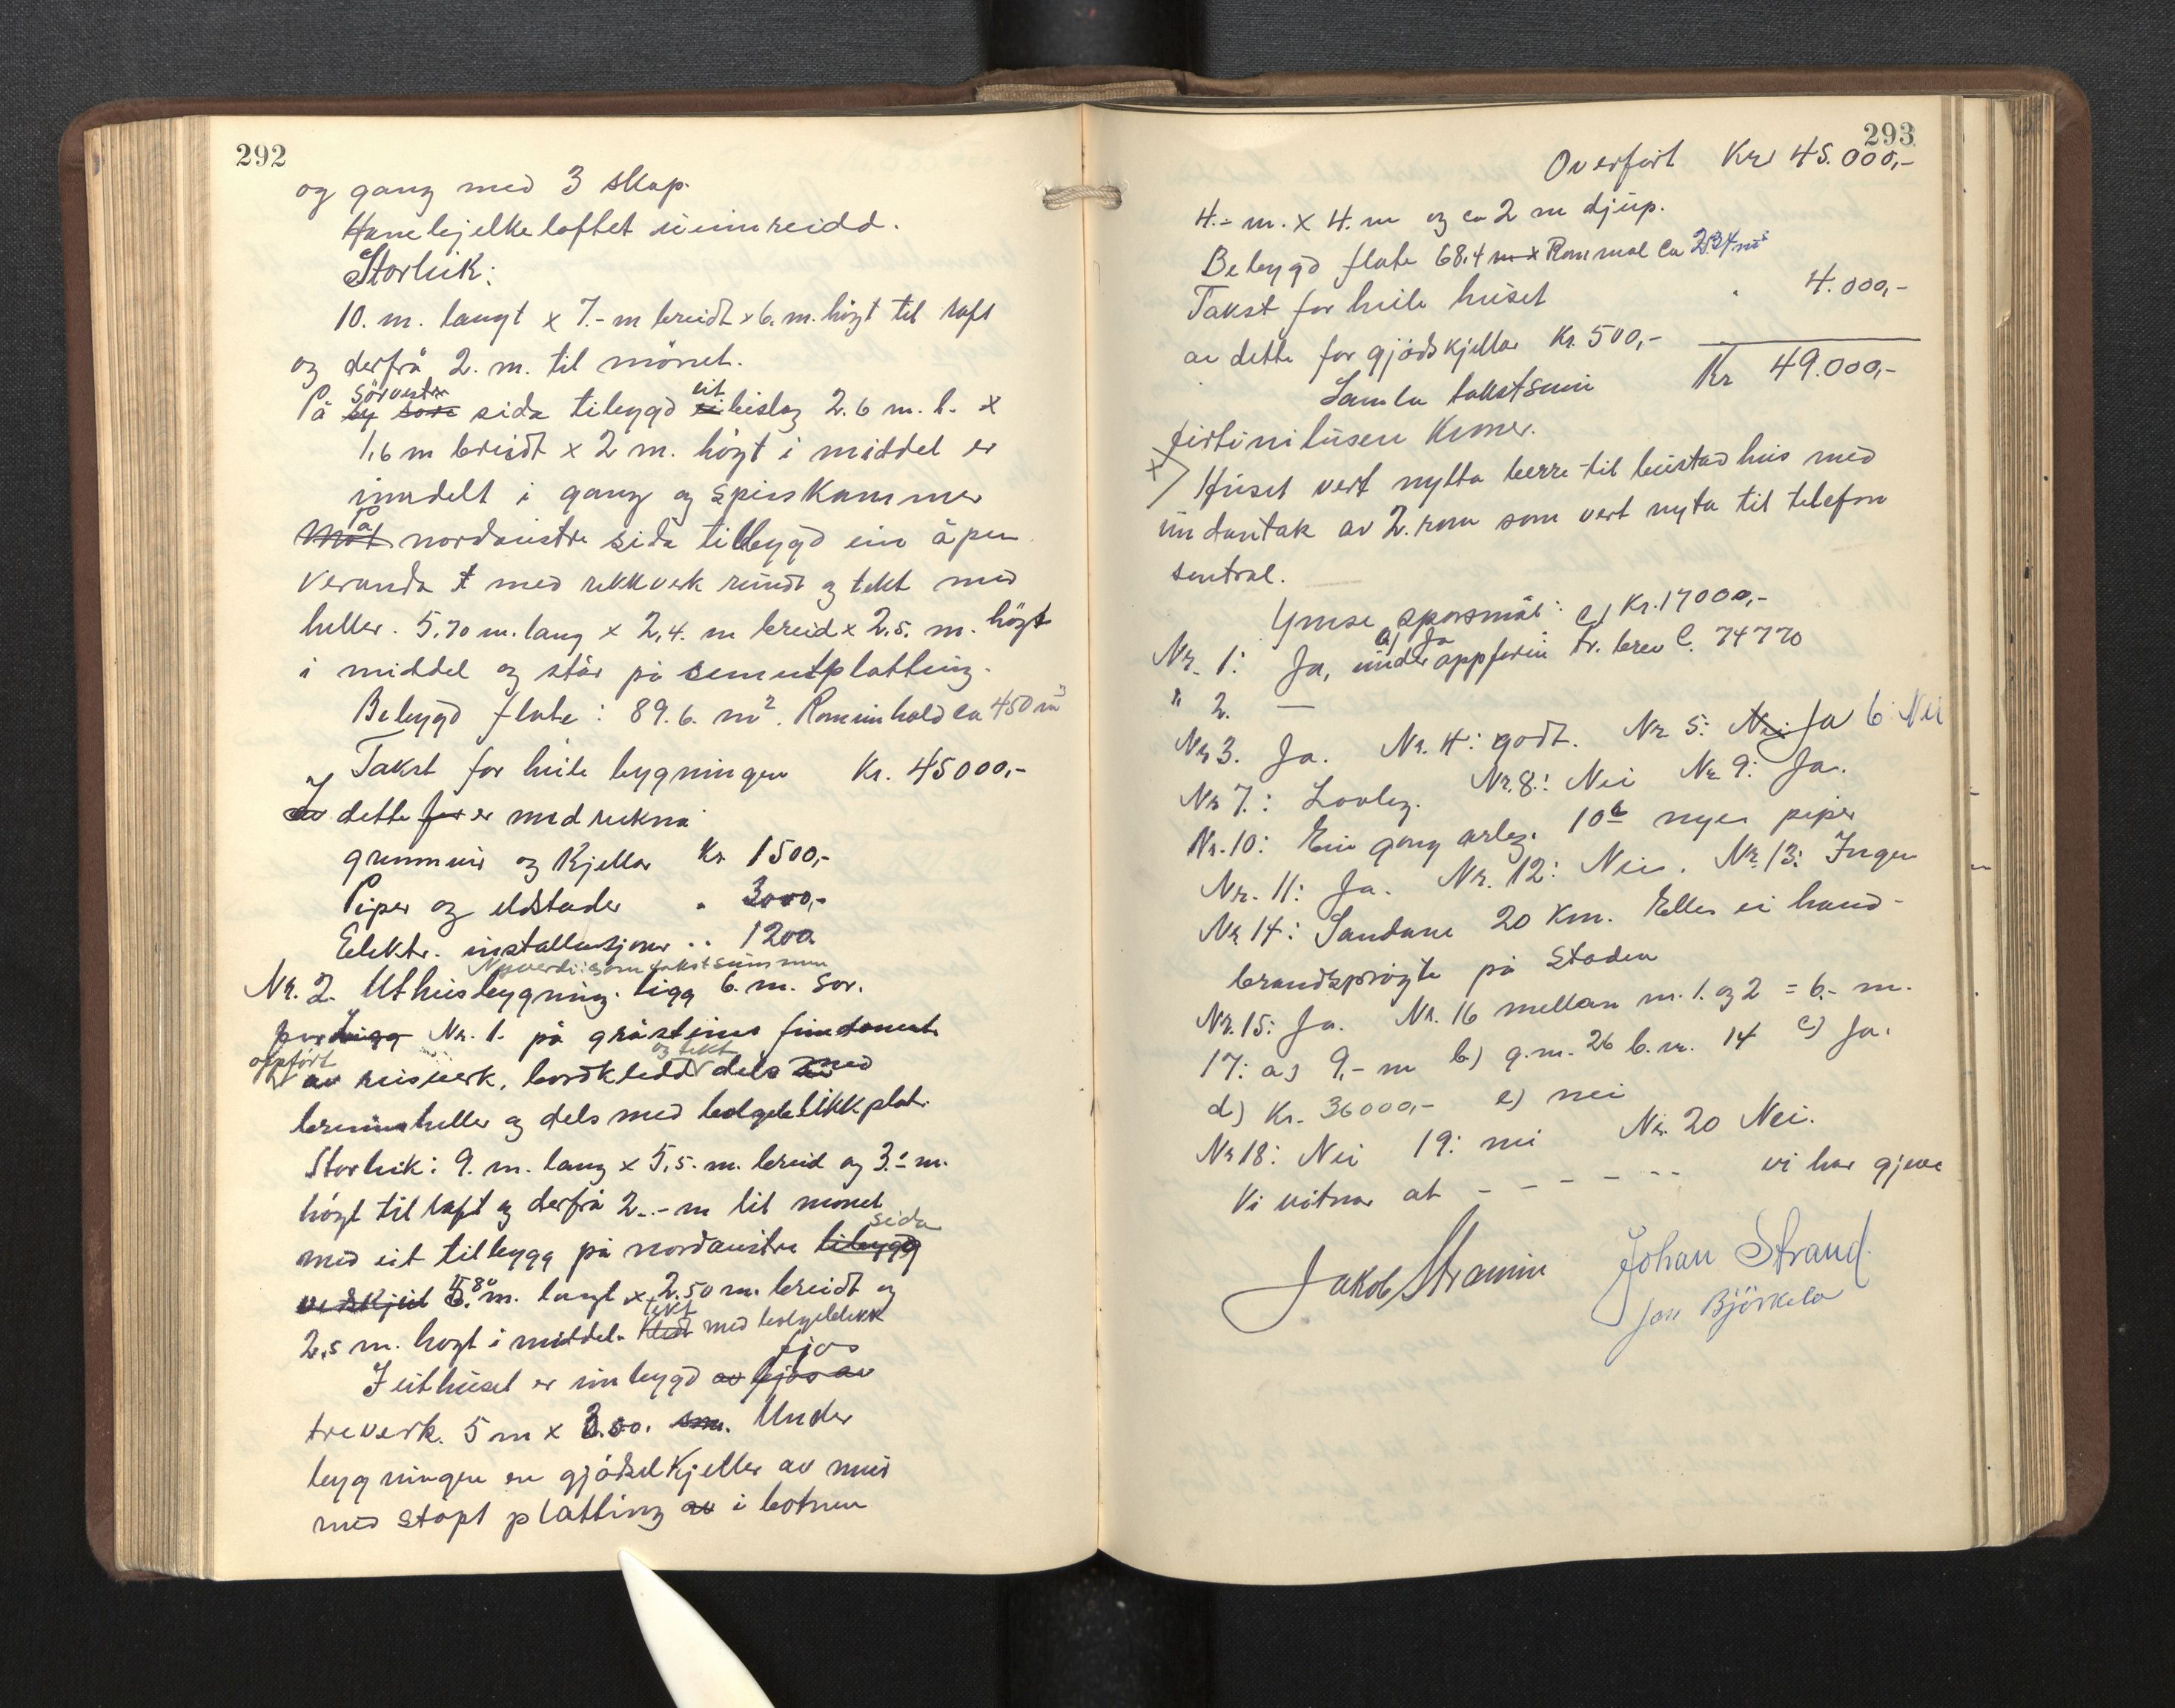 292
og gang med 3 skap.
Hanebjelkeloftet uinnreidd.
Storleik:
10. m. langt x 7.- m breidt x 6. m. högt til raft
og derfrå 2. m. til mönet.
På sörvestre sida tilbygd eit bislag 2.6 m. l. x
1,6 m breidt x 2 m. högt i middel er
inndelt i gang og spiskammer
på nordaustre sida tilbygd ein åpen
veranda med rekkverk rundt og tekt med
heller. 5,70 m. lang x 2,4. m breid x 2,5. m. högt
i middel og står på sementplatting.
Bebygd flate: 89.6. m². Rominhold ca 450 m³
Takst for heile bygningen Kr. 45000,-
I dette er medrekna
grunnmur og Kjellar Kr 1500,-
Piper og eldstader " 3000,-
Elektr. installasjoner " 1200.
Nyverdi: som takstsummen
Nr. 2. Uthusbygning. ligg 6. m. sor.
for Nr. 1. på gråsteins fundament
oppfört av reisverk, bordkledd og tekt dels med
heller og dels med bolgeblikkplat.
Storleik: 9. m. lang x 5,5. m. breid og 3.- m.
högt til raft og derfrå 2.- m til monet
med eit tilbygg på nordaustre sida
4.80 m. langt x 2.50 m. breidt og
2,5 m. hogt i middel. tekt med bolgeblekk
I uthuset er innbygd fjos
treverk. 5 m x 3.50. Under
bygningen en gjödselkjeller av mur
med stöpt platting i botnen
293
Overfört Kr 45.000,-
4.- m. x 4. m og ca 2 m djup.
Bebygd flate 68,4 m x Rommal ca 234 m³
Takst for heile huset " 4.000,-
av dette for gjödskjellar Kr. 500,-
Samla takstsum Kr 49.000,-
firtinitusen Kroner.
x) Huset vert nytta berre til bustadhus med
undantak av 2. rom som vert nyta til telefon
sentral.
Ymse sporsmål: c) Kr. 17000,-
a) Ja
Nr. 1: Ja, under oppforin br. brev C. 74770
" 2. —
Nr 3. Ja. Nr. 4: godt. Nr 5: Ja 6: Nei
Nr 7.: Lovleg. Nr. 8.: Nei Nr 9: Ja.
Nr. 10: Ein gong arleg. 10b nyer piper
Nr. 11: Ja. Nr. 12: Nei. Nr. 13: Ingen
Nr 14: Sandane 20 Km. Elles ei hand-
brandsprögte på staden
Nr. 15: Ja. Nr. 16 mellan nr. 1. og 2 = 6.- m.
17: a) 9,- m b) g.nr. 26 b.nr. 14 c) Ja.
d) Kr. 36000,- e) nei
Nr 18: Nei 19: nei Nr. 20 Nei.
Vi vitnar at - - - - - - vi har gjeve
Jakob Straumn Johan Strand.
Jon Björkelo